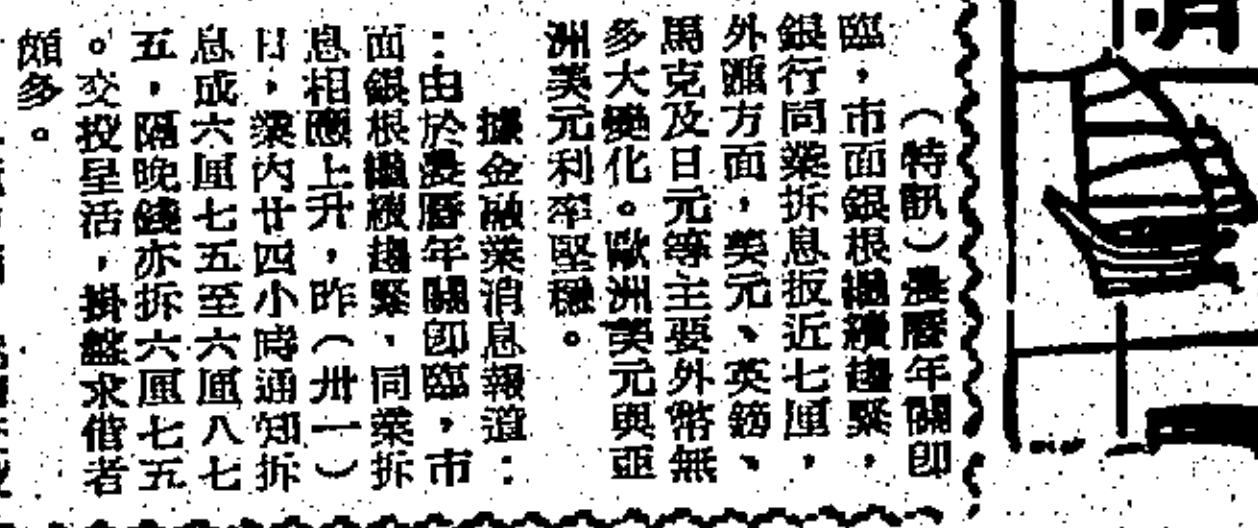 （特訊）農曆年關即
臨，市面銀根繼續趨緊，
銀行同業拆息扳近七厘，
外匯方面，美元、英鎊、
馬克及日元等主要外幣無
多大變化。歐洲美元與亞
洲美元利率堅穩。
據金融業消息報道：
：由於農曆年關即臨，市
面銀根繼續趨緊，同業拆
息相應上升，昨（卅一）
日，業內廿四小時通知拆
息成六厘七五至六厘八七
五，隔晚錢亦拆六厘七五
。交投呈活，掛盤求借者
頗多。